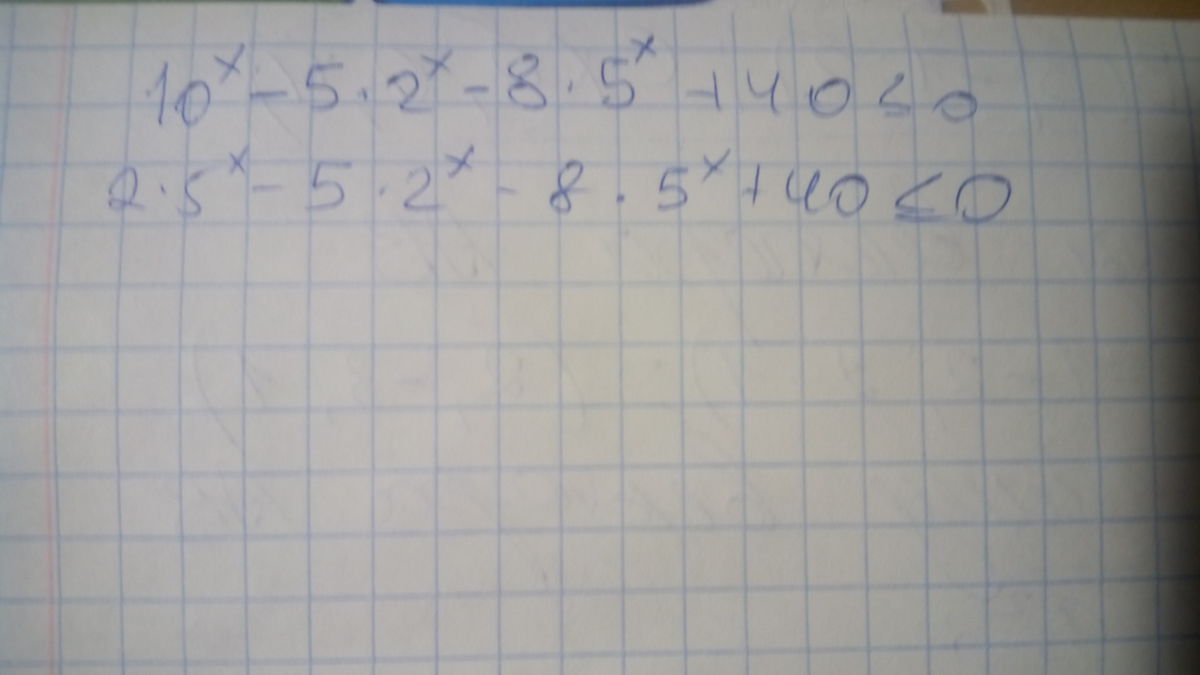 10ˣ - 5 · 2ˣ - 8 · 5ˣ + 40 ≤ 0
2 · 5ˣ - 5 · 2ˣ - 8 · 5ˣ + 40 ≤ 0